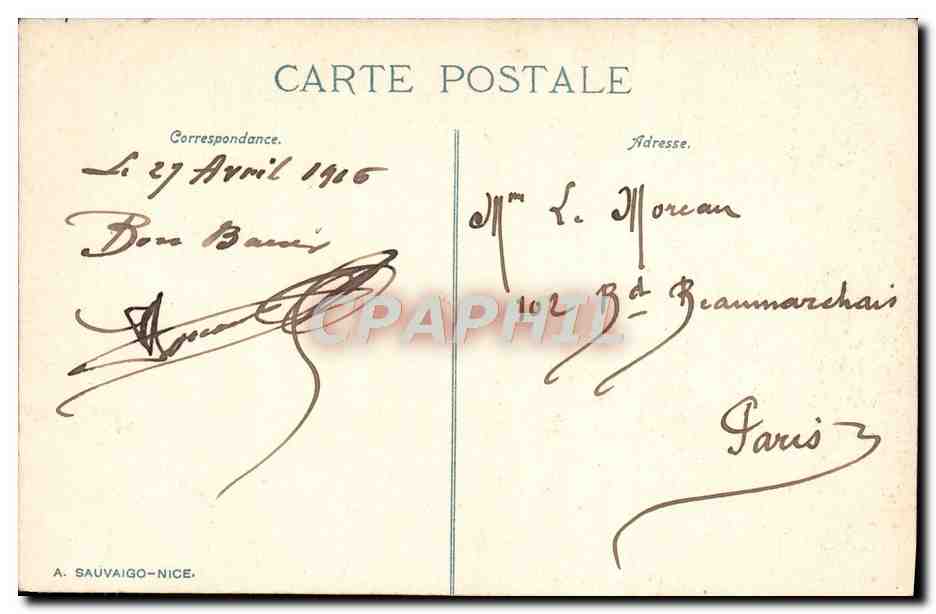 CARTE POSTALE
Correspondance.
Le 27 Avril 1906
Bon Baiser
Adresse.
Mme Le Moreau
102 Bd Beaumarchais
Paris
CPAPHIL
A. SAUVAIGO-NICE.